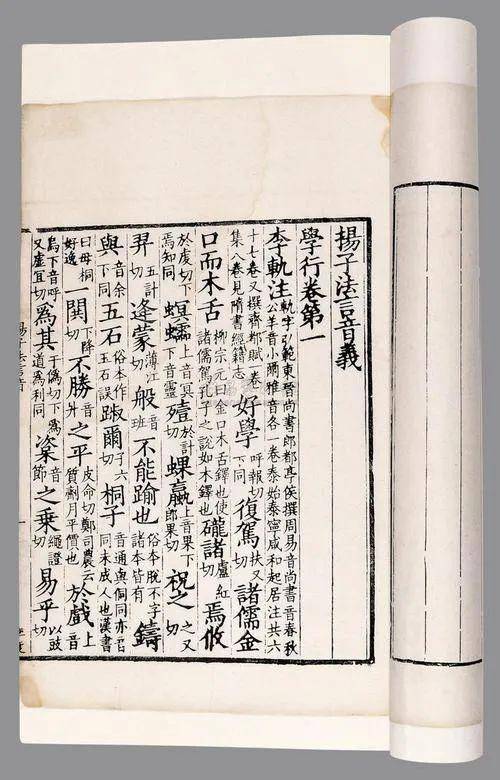 揚子法言音義
學行卷第一
李軌注軌字弘範東晉尚書郎都亭侯撰周易音尚書音春秋公羊音小爾雅音各一卷泰始泰寧咸和起居注共六
十七卷又撰齊都賦一卷集八卷見隋書經籍志好學呼報切下同復駕扶又切諸儒金
口而木舌柳宗元曰金口木舌鐸也使諸儒駕孔子之說如木鐸也礲諸盧紅切焉攸
於虔切下焉知同螟蠕上音冥下音靈殪於計切蜾蠃上音果下郎果切祝之之又切
羿五計切逢蒙薄江切般音班不能踰也俗本脫不字諸本皆有鑄
與音余下同五石俗本作玉石誤踧爾子六切桐子音通與侗同亦音同未成人也漢書
曰毋桐好逸一閧下降切不勝音升之平皮命切鄭司農云質劑月平價也於戲上音
烏下音呼又虛宜切爲其于僞切下爲道爲利同楶音節之乘繩證切易乎以豉切